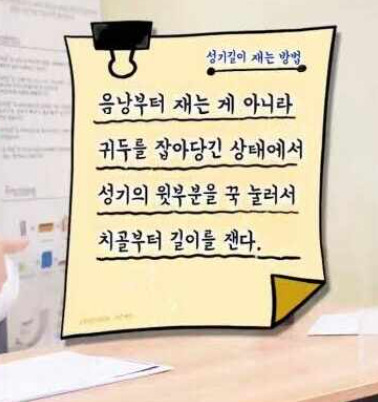 성기길이 재는 방법
음낭부터 재는 게 아니라
귀두를 잡아당긴 상태에서
성기의 윗부분을 꾹 눌러서
치골부터 길이를 잰다.